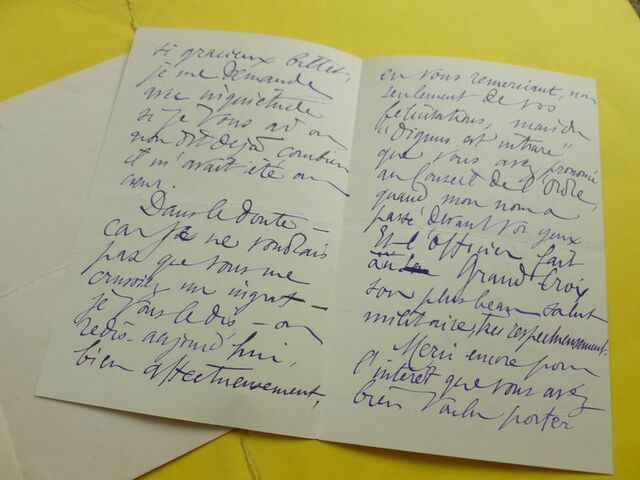 si gracieux billet,
je me demande
avec inquiétude
si je vous ai ou
non dit déjà combien
il m'avait été au
cœur.
Dans le doute –
car je ne voudrais
pas que vous me
crussiez un ingrat –
je vous le dis – ou
redis – aujourd'hui,
bien affectueusement,
en vous remerciant, non
seulement de vos
félicitations, mais du
"Dignus est intrare"
que vous avez prononcé
au Conseil de l'Ordre,
quand mon nom a
passé devant vos yeux.
Et l'Officier fait
au Grand Croix
son plus beau salut
militaire, très respectueusement.
Merci encore pour
l'intérêt que vous avez
bien voulu porter